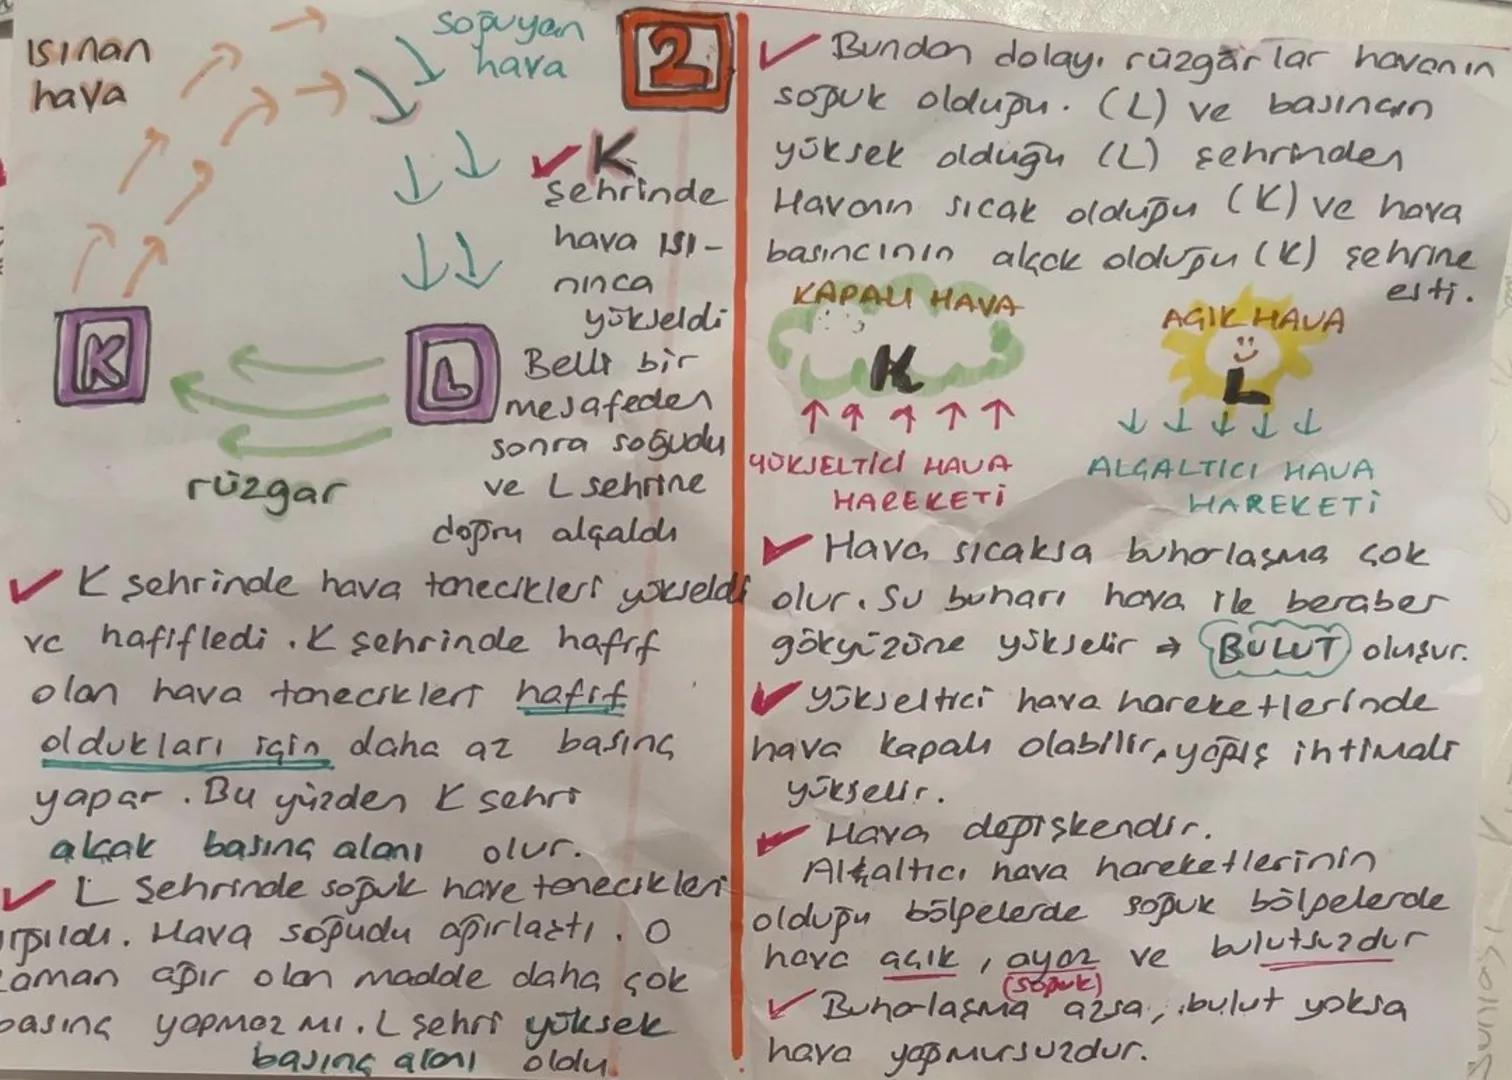 ısınan
hava
soğuyan
hava
2
✓ K
şehrinde
hava ısı-
nınca
yükseldi
Belli bir
mesafeden
sonra soğudu
ve L şehrine
doğru alçaldı
K
L
rüzgar
✓ K şehrinde hava tanecikleri yükseldi
ve hafifledi. K şehrinde hafif
olan hava tanecikleri hafif
oldukları için daha az basınç
yapar. Bu yüzden K şehri
alçak basınç alanı olur.
✓ L şehrinde soğuk hava tanecikleri
Hava soğudu ağırlaştı. O
zaman ağır olan madde daha çok
basınç yapmaz mı. L şehri yüksek
basınç alanı oldu.
✓ Bundan dolayı rüzgârlar havanın
soğuk olduğu. (L) ve basıncın
yüksek olduğu (L) şehrinden
Havanın sıcak olduğu (K) ve hava
basıncının alçak olduğu (K) şehrine
esti.
KAPALI HAVA
K
YÜKSELTİCİ HAVA
HAREKETİ
AÇIK HAVA
L
ALÇALTICI HAVA
HAREKETİ
✓ Hava sıcaksa buharlaşma çok
olur. Su buharı hava ile beraber
gökyüzüne yükselir → BULUT oluşur.
✓ Yükseltici hava hareketlerinde
hava kapalı olabilir, yağış ihtimali
yükselir.
✓ Hava değişkendir.
Alçaltıcı hava hareketlerinin
olduğu bölgelerde soğuk bölgelerde
hava açık, ayaz ve bulutsuzdur
(soğuk)
✓ Buharlaşma azsa, bulut yoksa
hava yağmursuzdur.